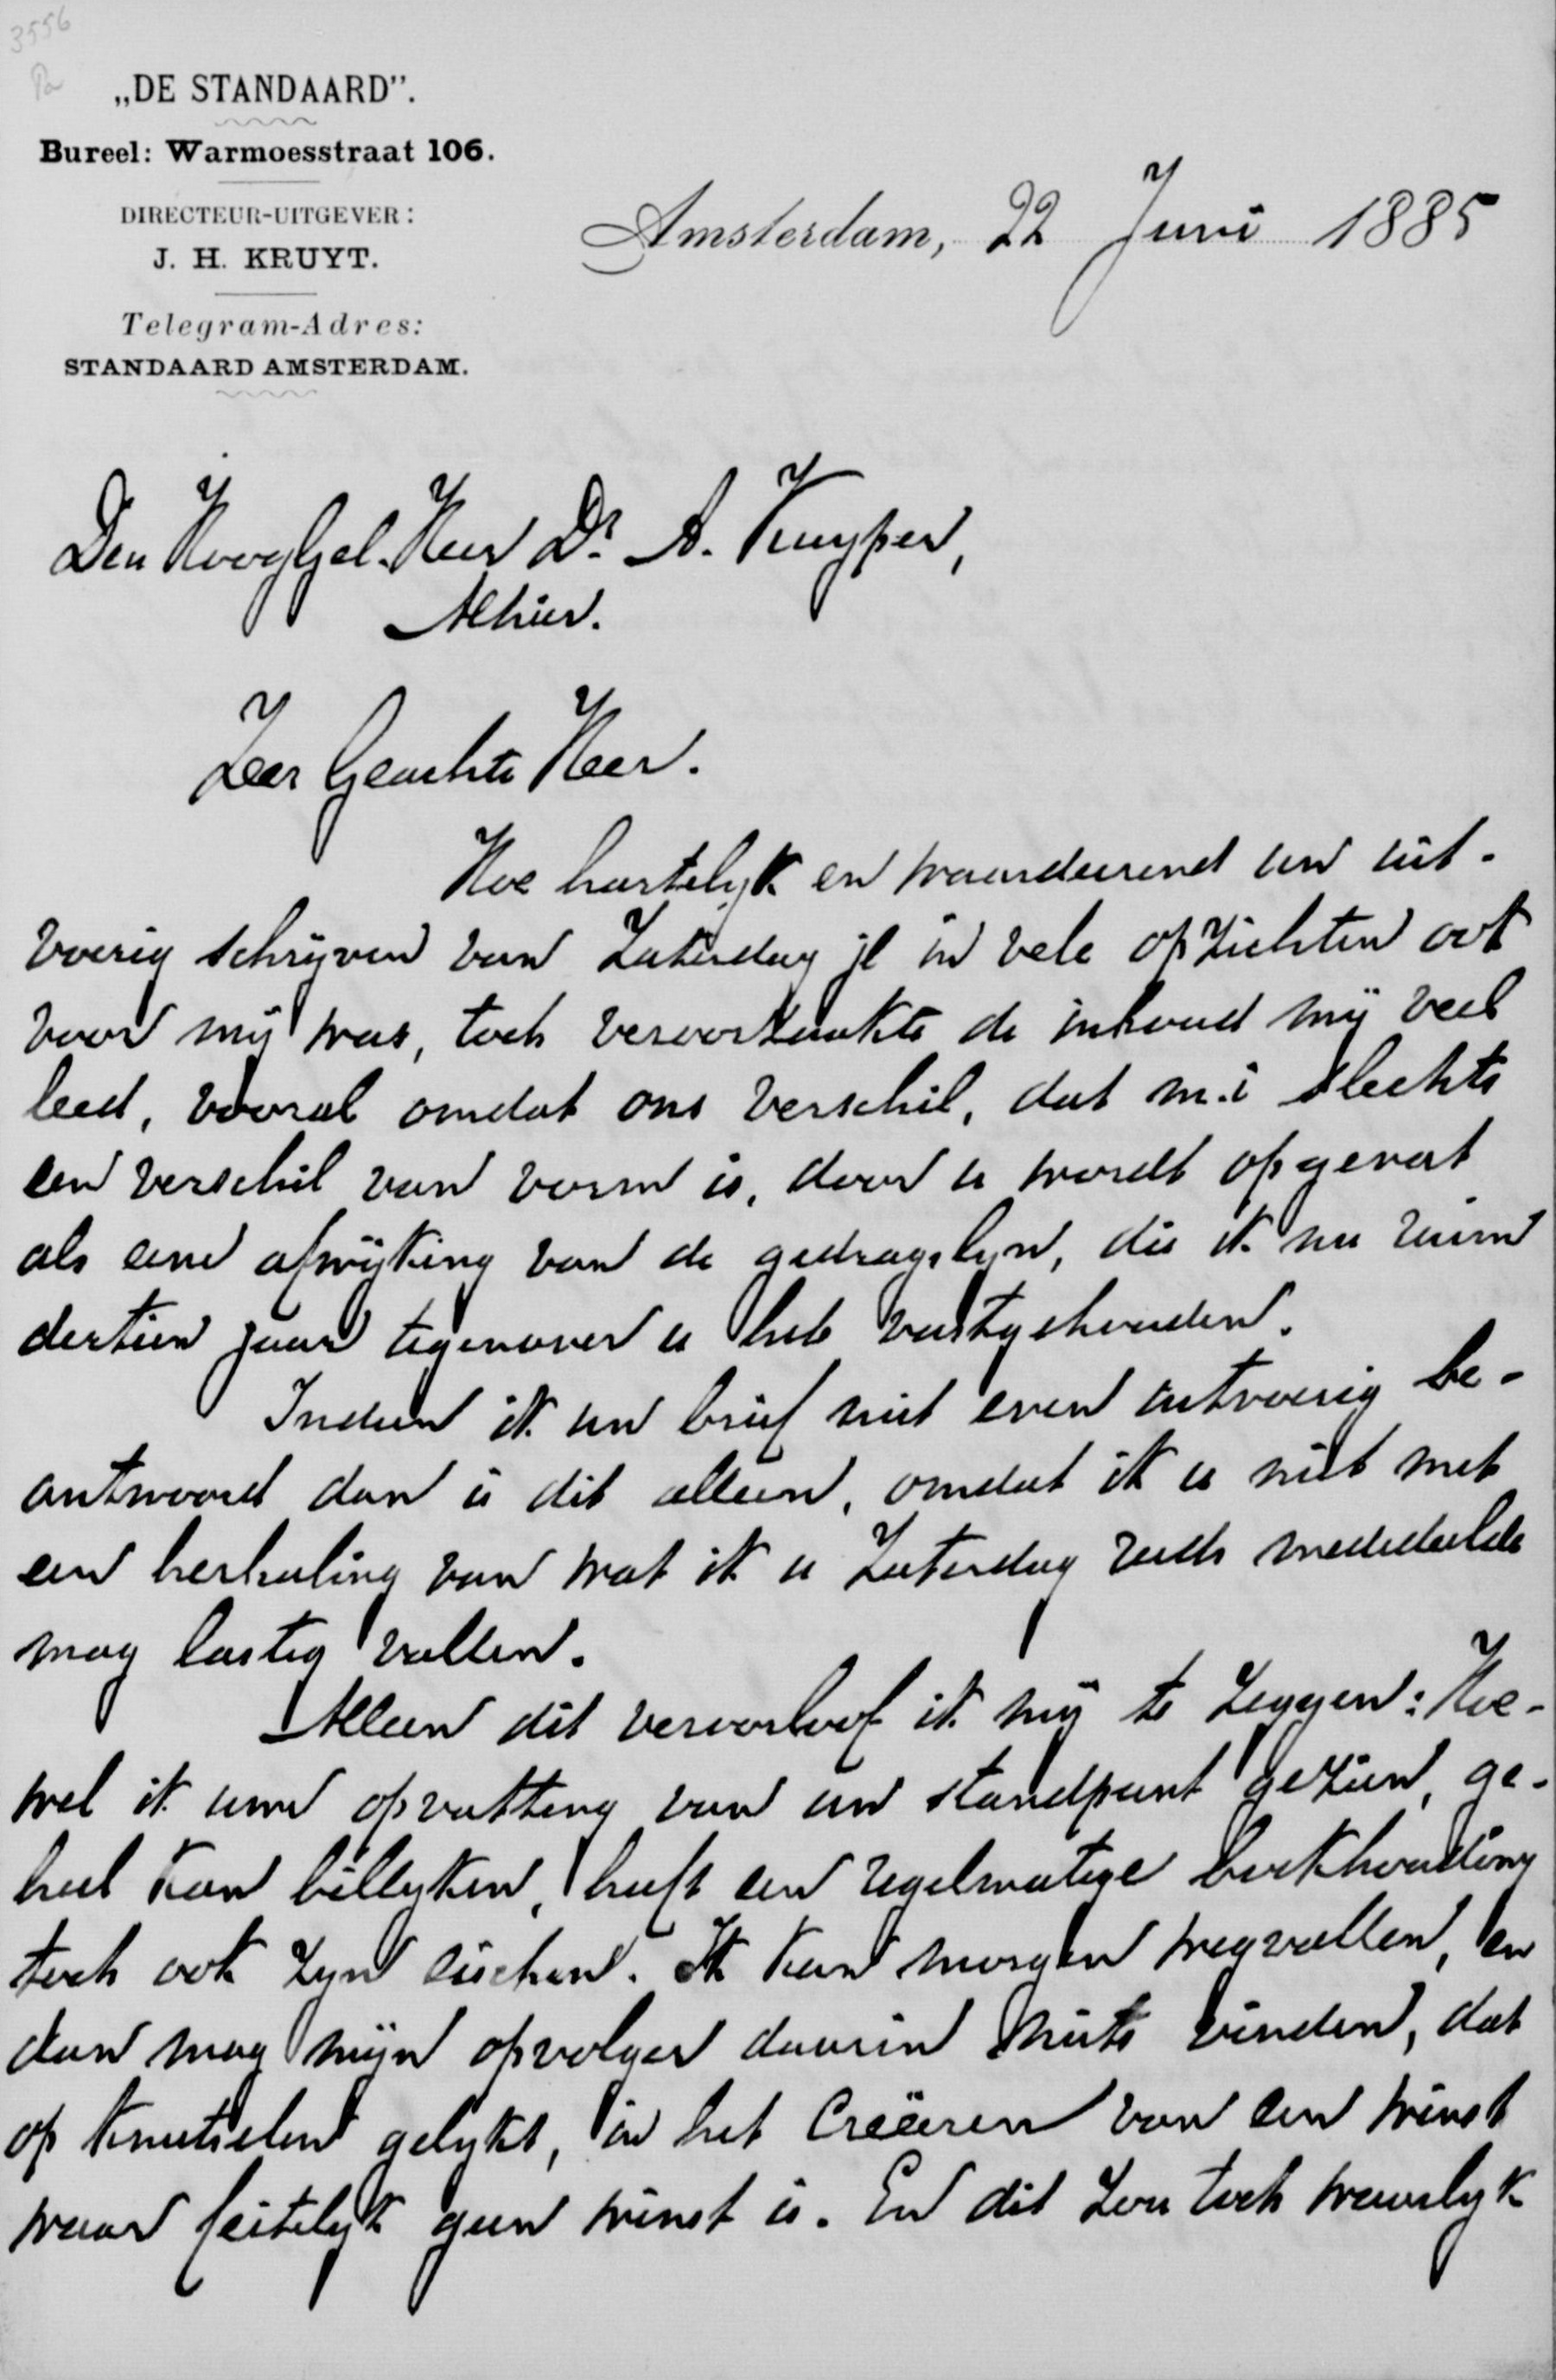 3556
Pa
„DE STANDAARD”.
Bureel: Warmoesstraat 106.
DIRECTEUR-UITGEVER:
J. H. KRUYT.
Telegram-Adres:
STANDAARD AMSTERDAM.
Amsterdam, 22 Juni 1885
Den HoogGel. Heer Dr. A. Kuyper,
Alhier.
Zeer Geachte Heer.
Hoe hartelijk en waardeerend uw uit-
voerig schrijven van Zaterdag jl in vele opzichten ook
voor mij was, toch veroorzaakte de inhoud mij veel
leed, vooral omdat ons verschil, dat m.i slechts
een verschil van vorm is, door u wordt opgevat
als eene afwijking van de gedragslijn, die ik nu ruim
dertien jaar tegenover u heb vastgehouden.
Indien ik uw brief niet even uitvoerig be-
antwoord dan is dit alleen, omdat ik u niet met
een herhaling van wat ik u Zaterdag reeds mededeelde
mag lastig vallen.
Alleen dit veroorloof ik mij te zeggen: Hoe-
wel ik uwe opvatting van uw standpunt gezien, ge-
heel kan billijken, heeft een regelmatige boekhouding
toch ook zijn eischen. Ik kan morgen wegvallen, en
dan mag mijn opvolger daarin niets vinden, dat
op knutselen gelijkt, in het creëeren van een winst
waar feitelijk geen winst is. En dit zou toch waarlijk